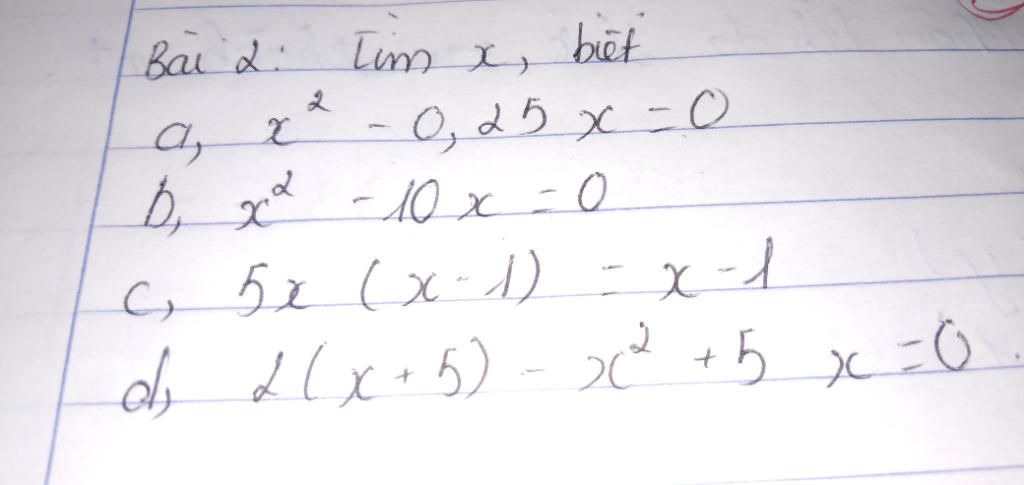 Bài 2: Tìm x, biết
a, x² - 0,25 x = 0
b, x² - 10 x = 0
c, 5x (x - 1) = x - 1
d, 2(x + 5) - x² + 5 x = 0